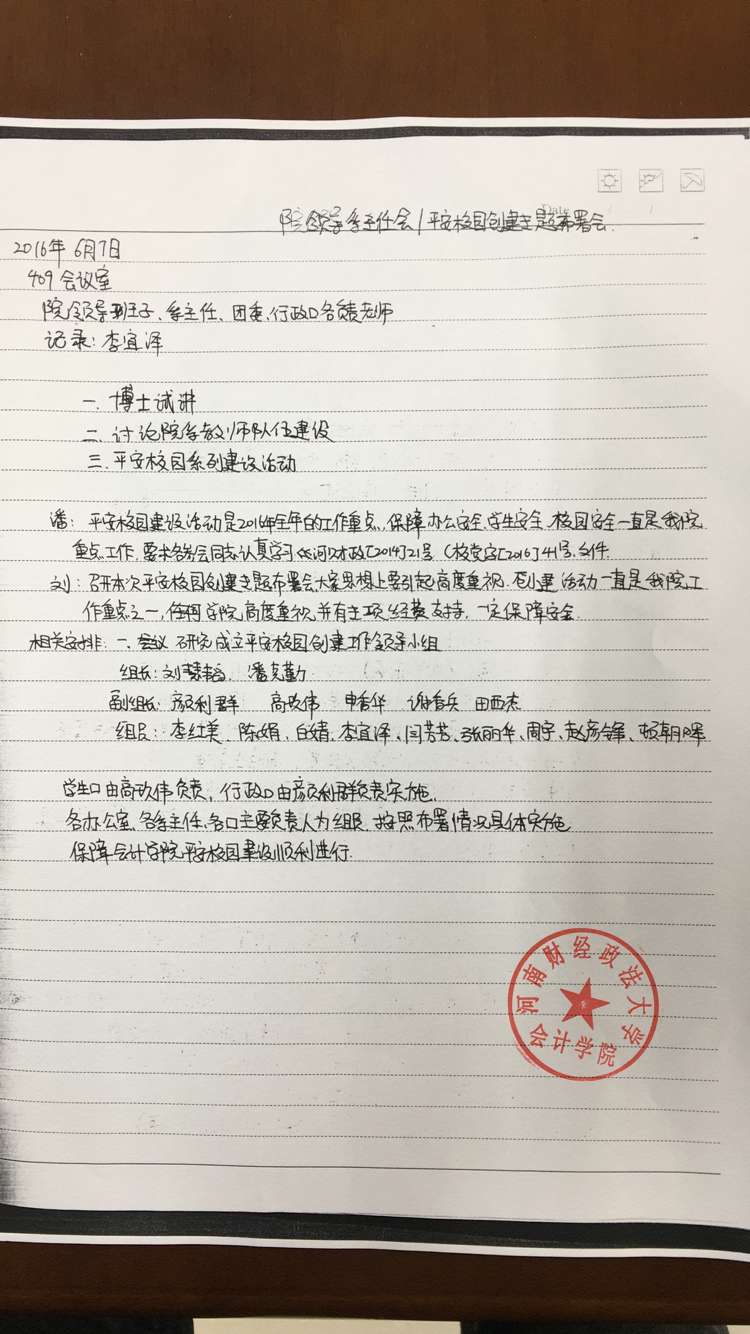 Date
院领导系主任会/平安校园创建主题布署会.
2016年6月7日
409会议室
院领导班子、系主任、团委、行政口各负责老师
记录:李宜泽
一.博士试讲
二.讨论院系教师队伍建设
三.平安校园系列建设活动
潘:平安校园建设活动是2016年全年的工作重点,保障办公安全.学生安全.校园安全一直是我院
重点工作.要求各参会同志认真学习《河财政[2014]21号(校党字[2016]41号.文件.
刘:召开本次平安校园创建主题布署会.大家思想上要引起高度重视.创建活动一直是我院工
作重点之一,任何学院高度重视.并有专项经费支持.一定保障安全
相关安排:一.会议研究成立平安校园创建工作领导小组
组长:刘 潘克勤
副组长:颜利群 高玖伟 申香华 谢香兵 田西杰
组员:李红美、陈娟、白婧、李宜泽、闫芳芳、张丽华、周宇、赵彦锋、顿朝晖
学生口由高玖伟负责,行政口由颜利群负责实施.
各办公室.各系主任.各口主要负责人为组员.按照布署情况具体实施
保障会计学院平安校园建设顺利进行.
河南财经政法大学
会计学院